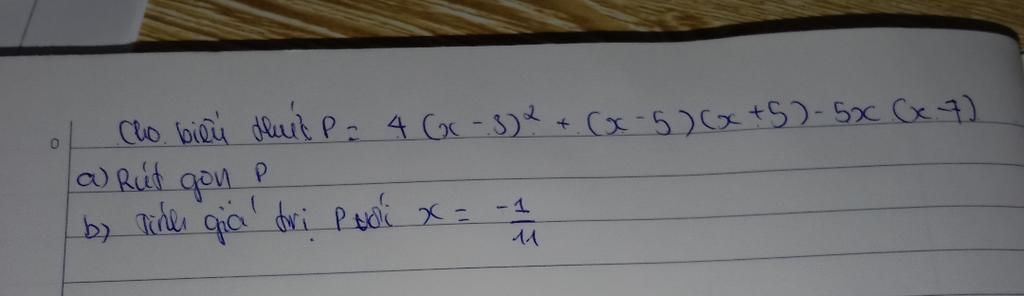 Cho biểu thức P = 4 (x - 3)² + (x - 5)(x + 5) - 5x (x - 7)
a) Rút gọn P
b) Tính giá trị P với x = -1/11